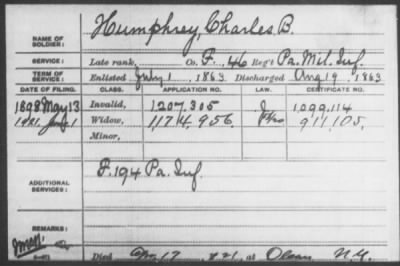 NAME OF SOLDIER: Humphrey, Charles B.
SERVICE: Late rank, Co. F, 46 Reg't Pa. Mil. Inf.
TERM OF SERVICE: Enlisted July 1, 1863. Discharged Aug 19, 1863
DATE OF FILING. CLASS. APPLICATION NO. LAW. CERTIFICATE NO.
1898 May 13 Invalid, 1207.305 1,099,114
1921, Widow, 1174,956 911,105.
Minor,
ADDITIONAL SERVICES: F. 194 Pa. Inf.
REMARKS:
Died 17 21, at Olean N.Y.